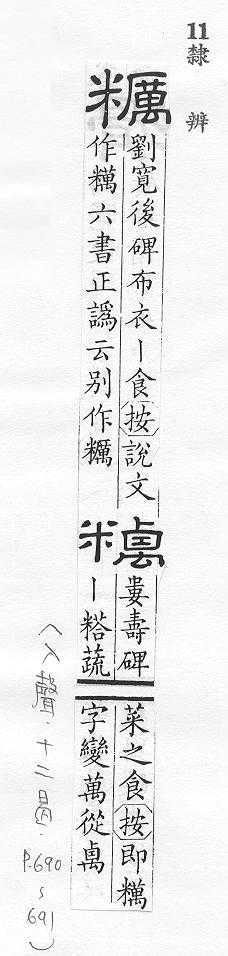 11 隸辨
糲
劉寬後碑布衣丨食按說文
作䊪六書正譌云別作糲
婁壽碑
丨蔬
菜之食按即䊪
字變萬從卨
〈入聲·十二曷·P.690 ~ 691〉